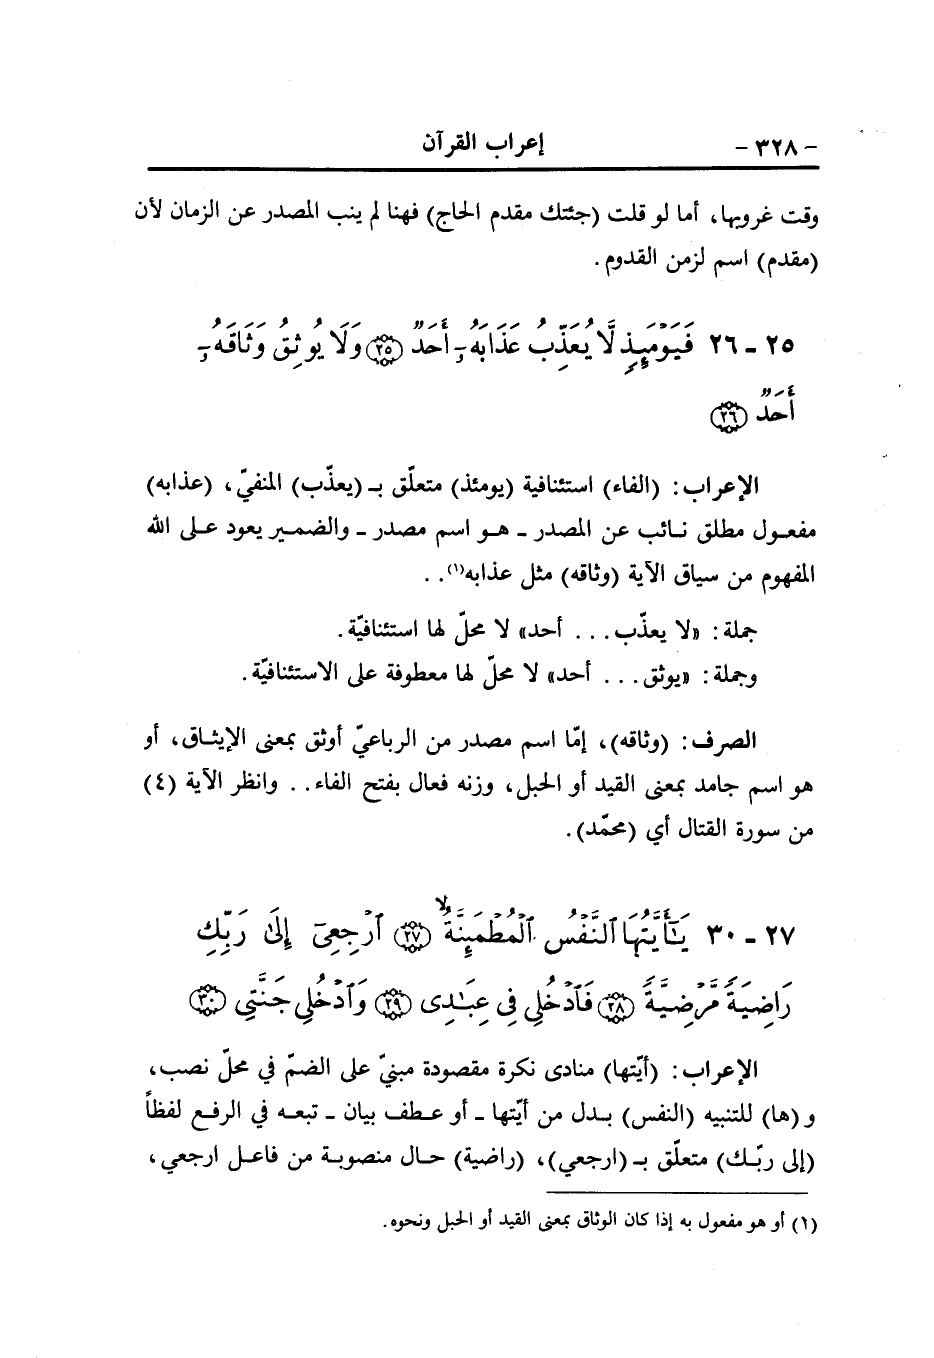 - ٣٢٨ - إعراب القرآن
وقت غروبها، أما لو قلت (جئتك مقدم الحاج) فهنا لم ينب المصدر عن الزمان لأن
(مقدم) اسم لزمن القدوم.
٢٥ - ٢٦ فَيَوْمَئِذٍ لَّا يُعَذِّبُ عَذَابَهُۥٓ أَحَدٌ ﴿٢٥﴾ وَلَا يُوثِقُ وَثَاقَهُۥٓ
أَحَدٌ ﴿٢٦﴾
الإعراب: (الفاء) استئنافية (يومئذ) متعلّق بـ (يعذّب) المنفيّ، (عذابه)
مفعول مطلق نائب عن المصدر - هو اسم مصدر - والضمير يعود على الله
المفهوم من سياق الآية (وثاقه) مثل عذابه(١)..
جملة: «لا يعذّب... أحد» لا محلّ لها استئنافيّة.
وجملة: «يوثق... أحد» لا محلّ لها معطوفة على الاستئنافيّة.
الصرف: (وثاقه)، إمّا اسم مصدر من الرباعيّ أوثق بمعنى الإيثاق، أو
هو اسم جامد بمعنى القيد أو الحبل، وزنه فعال بفتح الفاء.. وانظر الآية (٤)
من سورة القتال أي (محمّد).
٢٧ - ٣٠ يَٰٓأَيَّتُهَا ٱلنَّفْسُ ٱلْمُطْمَئِنَّةُ ۙ ﴿٢٧﴾ ٱرْجِعِىٓ إِلَىٰ رَبِّكِ
رَاضِيَةً مَّرْضِيَّةً ﴿٢٨﴾ فَٱدْخُلِى فِى عِبَٰدِى ﴿٢٩﴾ وَٱدْخُلِى جَنَّتِى ﴿٣٠﴾
الإعراب: (أيّتها) منادى نكرة مقصودة مبنيّ على الضمّ في محلّ نصب،
و (ها) للتنبيه (النفس) بدل من أيّتها - أو عطف بيان - تبعه في الرفع لفظاً
(إلى ربّك) متعلّق بـ (ارجعي)، (راضية) حال منصوبة من فاعل ارجعي،
(١) أو هو مفعول به إذا كان الوثاق بمعنى القيد أو الحبل ونحوه.